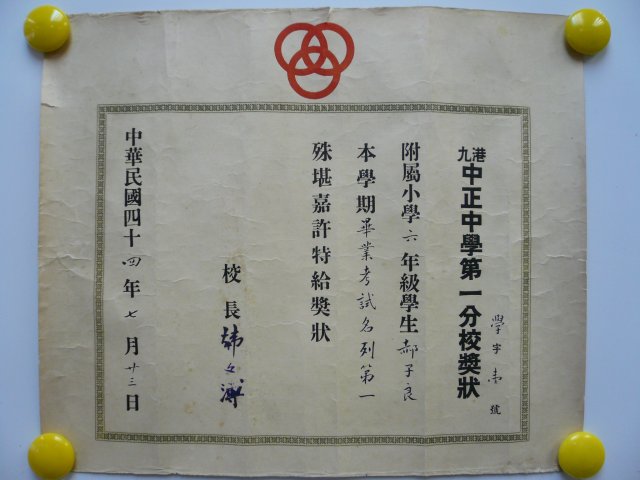 港九中正中學第一分校獎狀
學字壹號
附屬小學六年級學生郝子良
本學期畢業考試名列第一
殊堪嘉許特給獎狀
校長韓文溥
中華民國四十四年七月廿三日